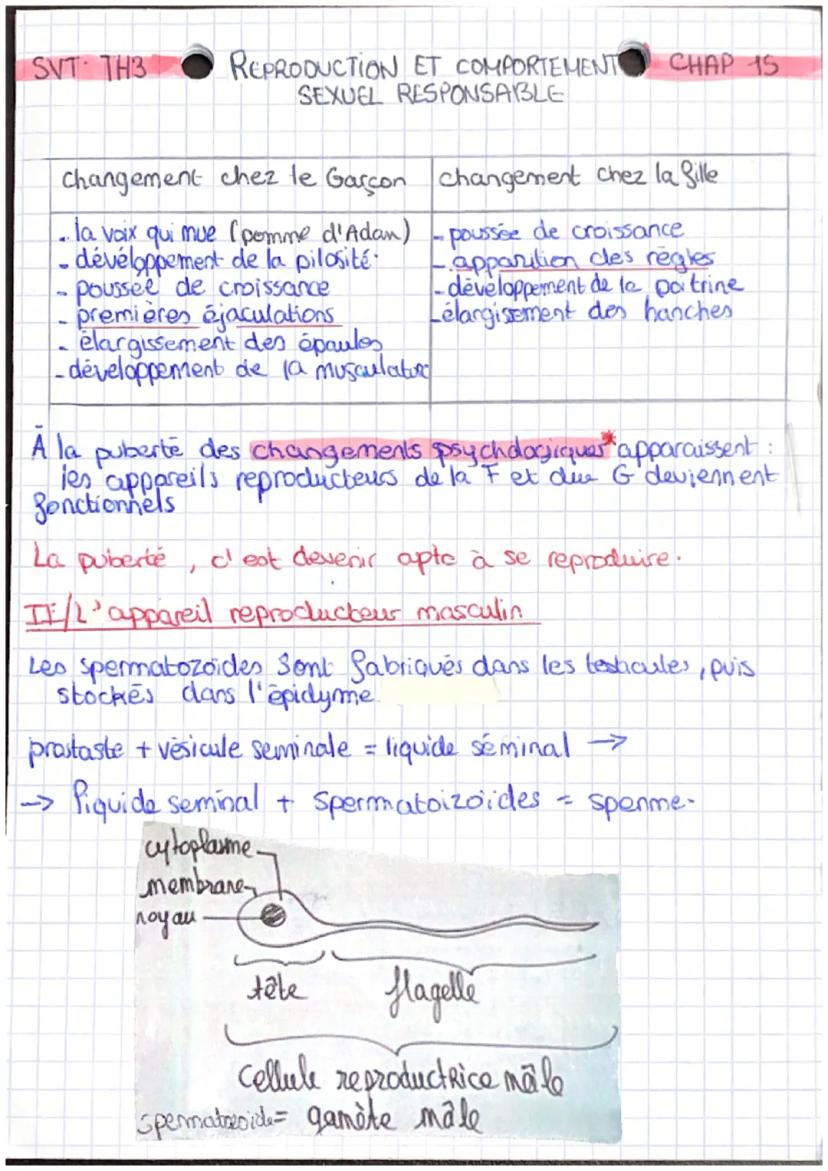 SVT: TH3 REPRODUCTION ET COMPORTEMENT CHAP 15
SEXUEL RESPONSABLE
changement chez le Garçon
changement chez la fille
- la voix qui mue (pomme d'Adam)
- dévéloppement de la pilosité.
- poussée de croissance
- premières éjaculations
- élargissement des épaules
- développement de la musculature
- poussée de croissance
- apparition des règles
- développement de la poitrine
- élargissement des hanches
À la puberté des changements psychologiques* apparaissent :
les appareils reproducteurs de la F et du G deviennent
fonctionnels
La puberté, c'est devenir apte à se reproduire.
II/L'appareil reproducteur masculin
Les spermatozoïdes sont fabriqués dans les testicules, puis
stockés dans l'épidyme
prostaste + vésicule seminale = liquide séminal →
→ liquide seminal + spermatoizoïdes = sperme.
cytoplasme
membrane
noyau
tête
flagelle
cellule reproductrice mâle
spermatozoide = gamète mâle